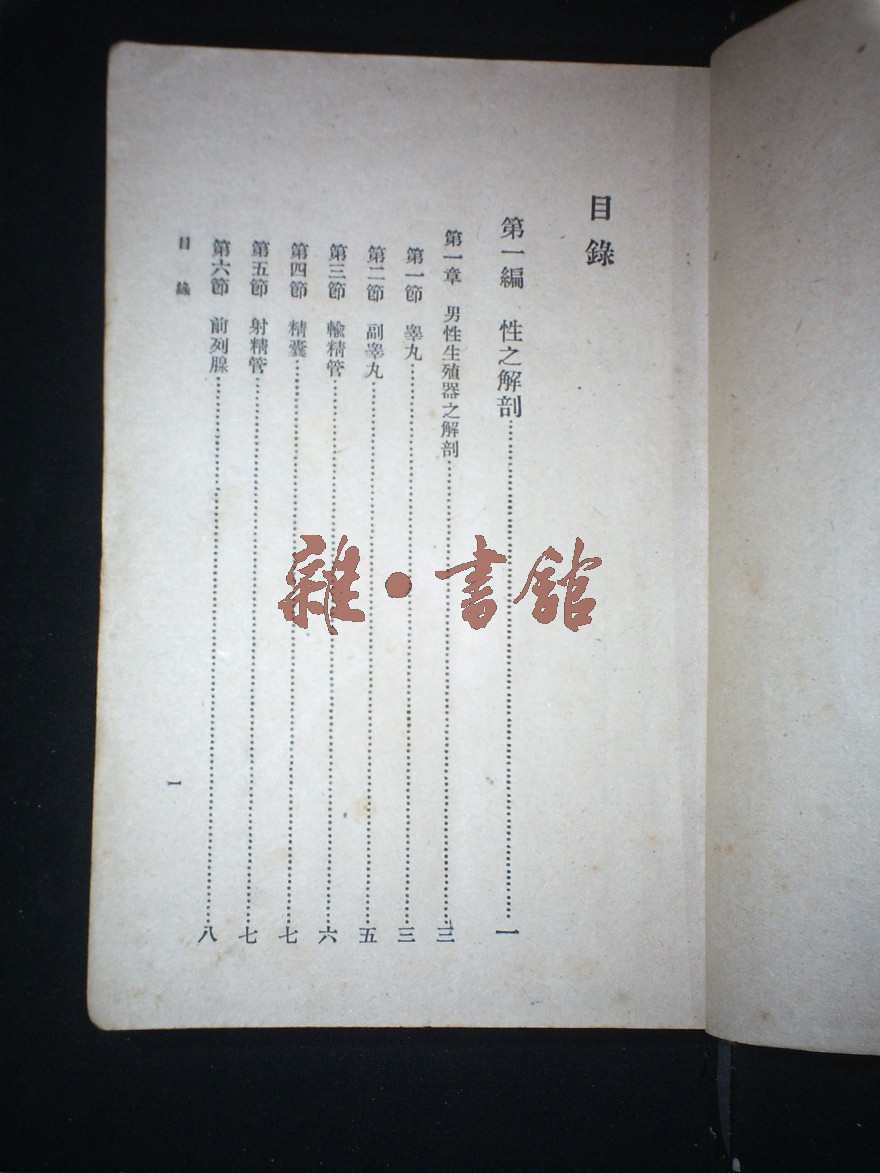 目錄
第一編 性之解剖……一
第一章 男性生殖器之解剖……三
第一節 睾丸……三
第二節 副睾丸……五
第三節 輸精管……六
第四節 精囊……七
第五節 射精管……七
第六節 前列腺……八
目錄 一
雜·書館